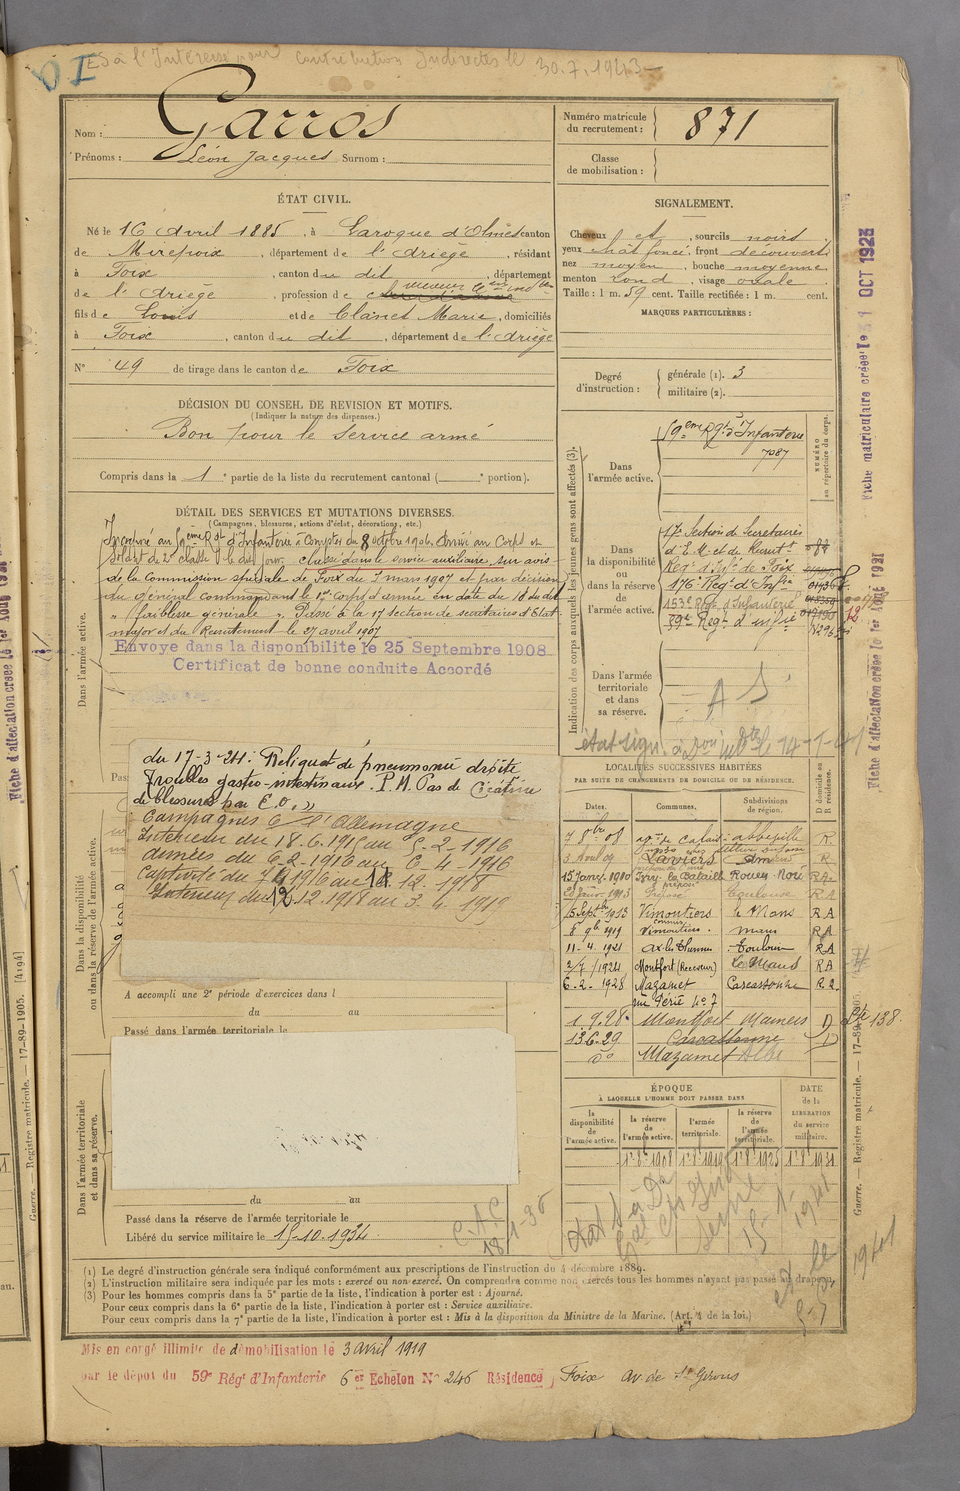 ES à l'Intéressé pour Contributions Indirectes le 30.7.1943
Nom : Garros
Prénoms : Léon Jacques Surnom :
Numéro matricule du recrutement : 871
Classe de mobilisation :
ÉTAT CIVIL.
Né le 16 Avril 1885, à Laroque d'Olmes canton
de Mirepoix, département de l'Ariège, résidant
à Foix, canton du dit, département
de l'Ariège, profession de
fils de Louis et de Clanet Marie, domiciliés
à Foix, canton du dit, département de l'Ariège
N° 49 de tirage dans le canton de Foix
SIGNALEMENT.
Cheveux et, sourcils noirs
yeux chât foncé, front découvert
nez moyen, bouche moyenne
menton rond, visage ovale
Taille : 1 m. 59 cent. Taille rectifiée : 1 m. cent.
MARQUES PARTICULIÈRES :
Degré d'instruction : générale (1). 3
militaire (2).
DÉCISION DU CONSEIL DE REVISION ET MOTIFS.
(Indiquer la nature des dispenses.)
Bon pour le Service armé
Compris dans la 1e partie de la liste du recrutement cantonal ( e portion).
DÉTAIL DES SERVICES ET MUTATIONS DIVERSES.
(Campagnes, blessures, actions d'éclat, décorations, etc.)
Dans l'armée active.
Incorporé au 59ème Rgt d'Infanterie à Compter du 8 octobre 1906. Arrivé au Corps et
soldat de 2e classe le dit jour. classé dans le service auxiliaire, sur avis
de la Commission spéciale de Foix du 7 mars 1907 et par décision
du Général commandant le 17e corps d'armée en date du 18 du dit
"faiblesse générale". Passé à la 17 section de secrétaires d'Etat
major et du Recrutement le 27 avril 1907
Envoyé dans la disponibilité le 25 Septembre 1908
Certificat de bonne conduite Accordé
du 17-3-24: Reliquat de pneumonie droite
Troubles gastro-intestinaux. P.M. Pas de Cicatrice
de blessures par E.O.»
Campagnes C/ l'Allemagne
Intérieur du 18.6.1915 au 5-2-1916
Armées du 6-2-1916 au 6-4-1916
Captivité du 7 4 1916 au 11 12.1918
Intérieur du 12.12.1918 au 3.4.1919
Dans la disponibilité ou dans la réserve de l'armée active.
A accompli une 2e période d'exercices dans l
du au
Passé dans l'armée territoriale le
Dans l'armée territoriale et dans sa réserve.
du au
Passé dans la réserve de l'armée territoriale le
Libéré du service militaire le 15-10-1934
Indication des corps auxquels les jeunes gens sont affectés (3).
NUMÉRO au répertoire du corps.
Dans l'armée active. 59ème Rgt d'Infanterie
7087
Dans la disponibilité ou dans la réserve de l'armée active.
17e Section de Secretaires
d'E.M. et de Recrutt
Regt d'Infie de Foix
176e Regt d'Infie
153e Régt d'Infanterie
59e Regt d'infie
Dans l'armée territoriale et dans sa réserve.
LOCALITÉS SUCCESSIVES HABITÉES
PAR SUITE DE CHANGEMENTS DE DOMICILE OU DE RÉSIDENCE.
Dates. Communes. Subdivisions de région. D domicile ou R résidence.
7 8bre 08 Abbeville R.
3 Aout 09 Laviers R
15 janv. 1910 Ivry la Bataille Rouen Nord RA
Toulouse RA
15 Septbre 1913 Vimoutiers le Mans RA
8 9bre 1919 Vimoutiers mans RA
11-4-1921 Ax les Thermes Toulouse RA
2/7/1924 Montfort (Receveur) Le Mans RA
6-2-1928 Mazamet Carcassonne R.A.
1.9.28 Montfort Mamers D
13.6.29 Carcassonne D
d° Mazamet Albi
ÉPOQUE
À LAQUELLE L'HOMME DOIT PASSER DANS
la disponibilité de l'armée active. la réserve de l'armée active. l'armée territoriale. la réserve de l'armée territoriale.
DATE de la LIBÉRATION du service militaire.
1 8 1908 1 8 1919 1 8 1925 1 8 1931
C.A.C
(1) Le degré d'instruction générale sera indiqué conformément aux prescriptions de l'instruction du 4 décembre 1889.
(2) L'instruction militaire sera indiquée par les mots : exercé ou non exercé. On comprendra comme non exercés tous les hommes n'ayant pas passé au drapeau.
(3) Pour les hommes compris dans la 5e partie de la liste, l'indication à porter est : Ajourné.
Pour ceux compris dans la 6e partie de la liste, l'indication à porter est : Service auxiliaire.
Pour ceux compris dans la 7e partie de la liste, l'indication à porter est : Mis à la disposition du Ministre de la Marine. (Art. 4 de la loi.)
Mis en congé illimité de démobilisation le 3 avril 1919
par le dépôt du 59e Régt d'Infanterie 6e Echelon N° 246 Résidence Foix Av. de St Girons
Fiche matriculaire créée le 31 OCT 1923
Fiche d'affectation créée le 1er Août 1921
Guerre. — Registre matricule. — 17-89-1905.
Guerre. — Registre matricule. — 17-89-1905. [4194]
Fiche d'affectation créée le 1er Août 1921